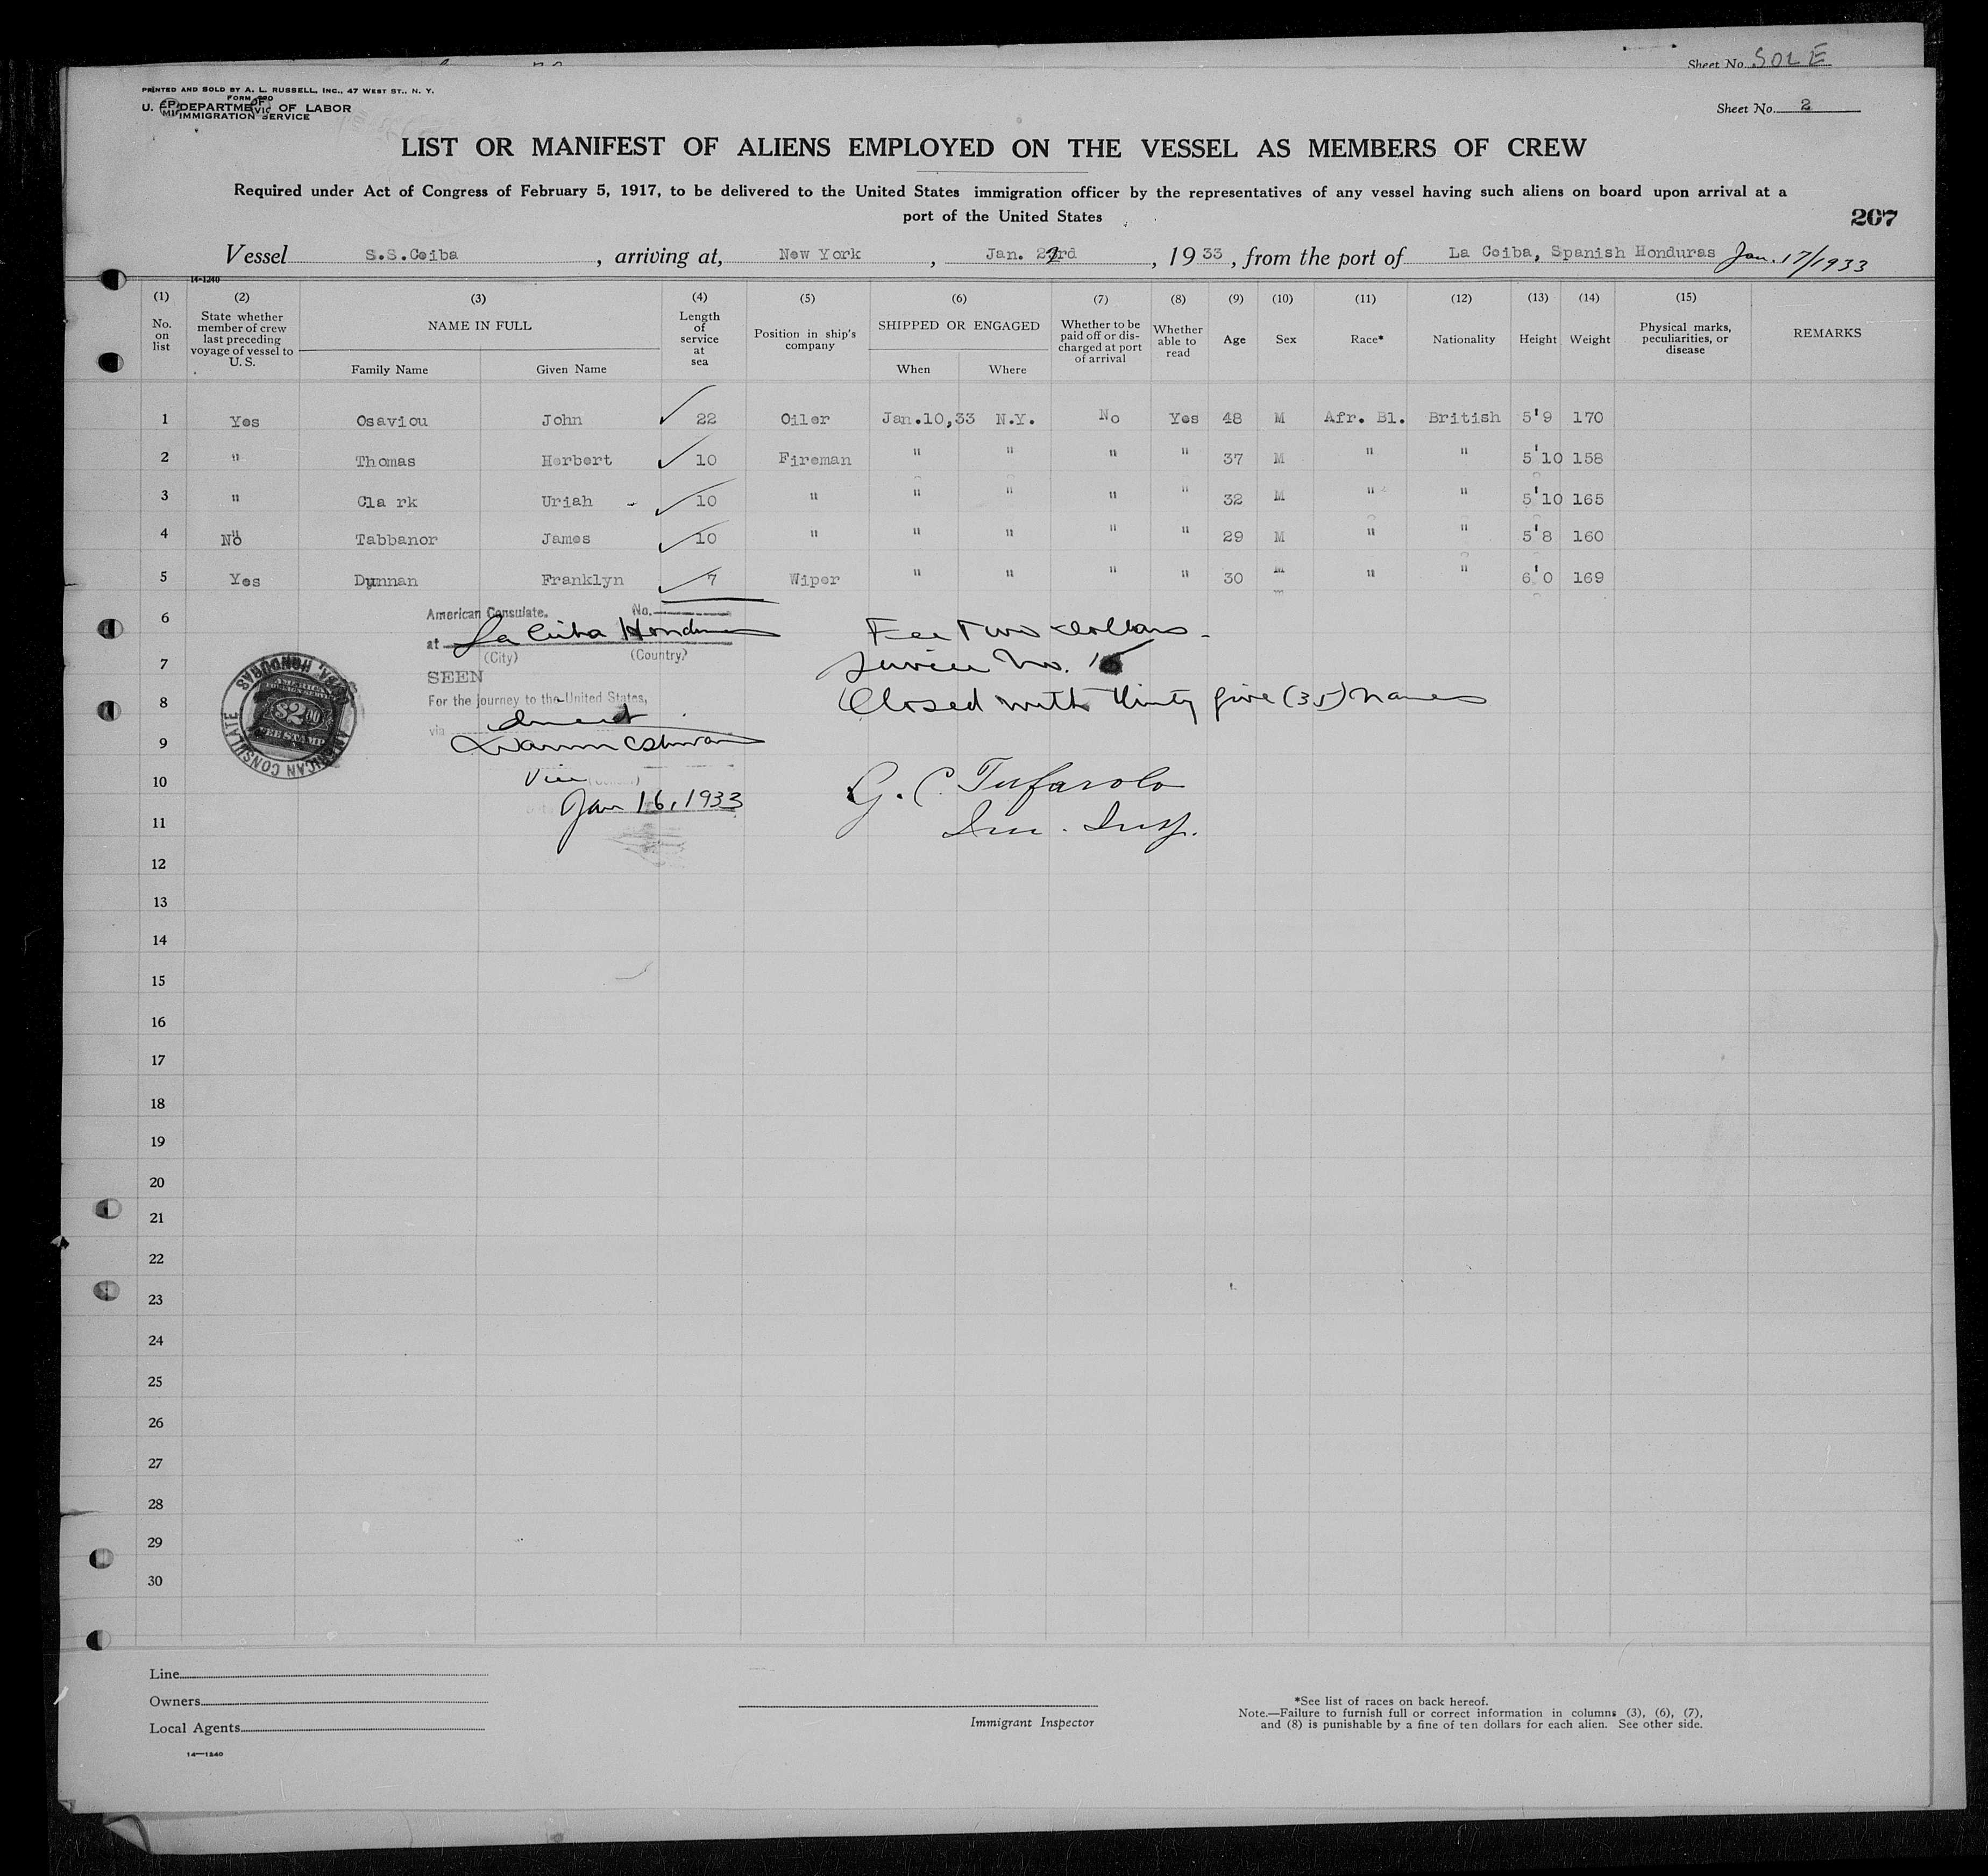 Sheet No. SOLE
PRINTED AND SOLD BY A. L. RUSSELL, INC., 47 WEST ST., N. Y.
FORM
U. DEPARTMENT OF LABOR
IMMIGRATION SERVICE
Sheet No. 2
LIST OR MANIFEST OF ALIENS EMPLOYED ON THE VESSEL AS MEMBERS OF CREW
Required under Act of Congress of February 5, 1917, to be delivered to the United States immigration officer by the representatives of any vessel having such aliens on board upon arrival at a
port of the United States
207
Vessel S.S.Ceiba, arriving at, New York, Jan. 23rd, 1933, from the port of La Ceiba, Spanish Honduras Jan. 17/1933
14-1240
(1) (2) (3) (4) (5) (6) (7) (8) (9) (10) (11) (12) (13) (14) (15)
No. on list State whether member of crew last preceding voyage of vessel to U. S. NAME IN FULL Family Name Given Name Length of service at sea Position in ship's company SHIPPED OR ENGAGED When Where Whether to be paid off or discharged at port of arrival Whether able to read Age Sex Race* Nationality Height Weight Physical marks, peculiarities, or disease REMARKS
1 Yes Osaviou John 22 Oiler Jan.10,33 N.Y. No Yes 48 M Afr. Bl. British 5'9 170
2 " Thomas Herbert 10 Fireman " " " " 37 M " " 5'10 158
3 " Cla rk Uriah 10 " " " " " 32 M " " 5'10 165
4 No Tabbanor James 10 " " " " " 29 M " " 5'8 160
5 Yes Dunnan Franklyn 7 Wiper " " " " 30 M " " 6'0 169
6
American Consulate. No.
at La Ceiba Honduras
(City) (Country)
Fee Two dollars.
7
SEEN
Service No.
8
For the journey to the United States,
Closed with thirty five (35) names
via direct
9
10
Vice
G. C. Tufarolo
Jan 16, 1933
11
Imm. Insp.
AMERICAN CONSULATE
CEIBA, HONDURAS
AMERICAN
FOREIGN SERVICE
$2.00
FEE STAMP
12
13
14
15
16
17
18
19
20
21
22
23
24
25
26
27
28
29
30
Line
Owners
Local Agents
14—1240
Immigrant Inspector
*See list of races on back hereof.
Note.—Failure to furnish full or correct information in columns (3), (6), (7),
and (8) is punishable by a fine of ten dollars for each alien. See other side.